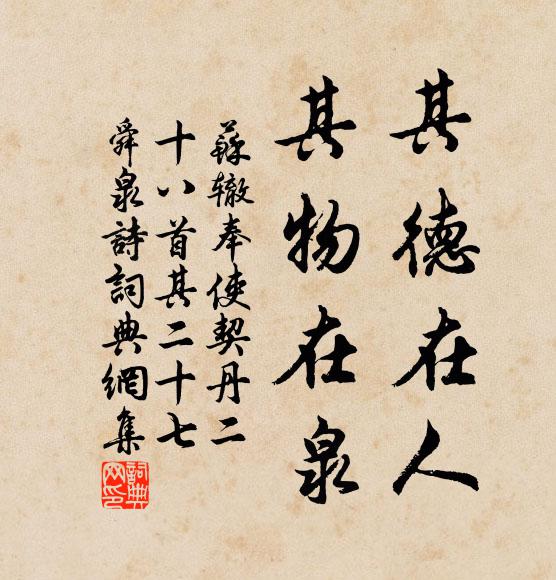 其德在人
其物在泉
蘇辙奉使契丹二
十八首其二十七
舜泉詩詞典網集
詞典
网印